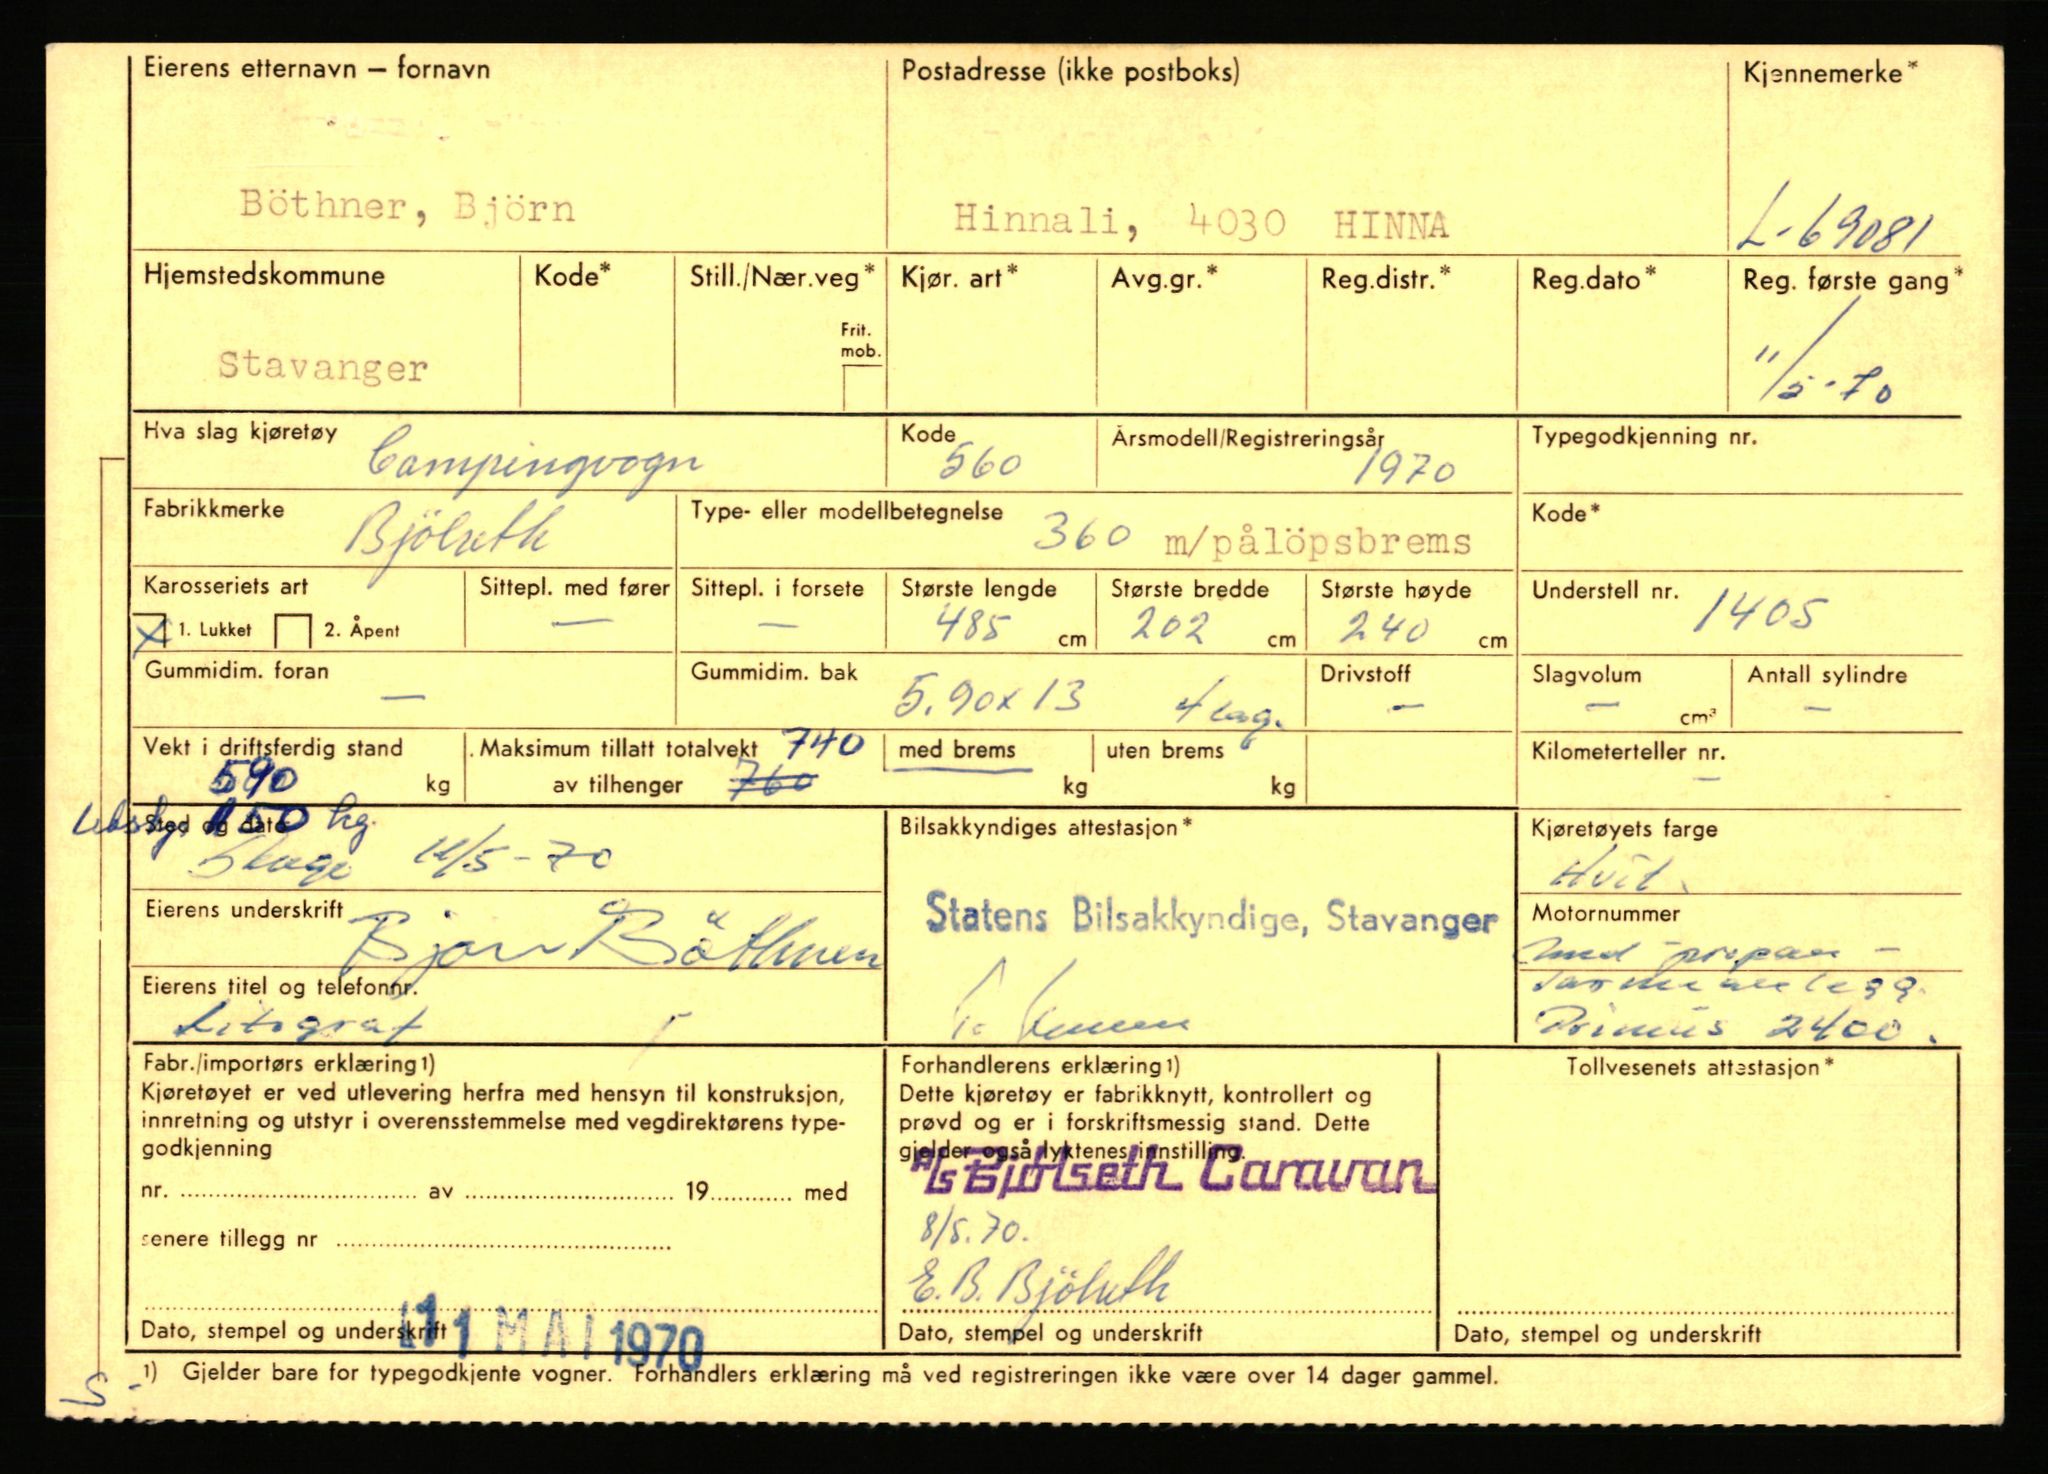 Eierens etternavn – fornavn
Postadresse (ikke postboks)
Kjennemerke*
Böthner, Björn
Hinnali, 4030 HINNA
L-69081
Hjemstedskommune
Kode*
Still./Nær.veg*
Kjør. art*
Avg.gr.*
Reg.distr.*
Reg.dato*
Reg. første gang*
Frit.
mob.
Stavanger
11/5-70
Hva slag kjøretøy
Campingvogn
Kode
560
Årsmodell/Registreringsår
1970
Typegodkjenning nr.
Fabrikkmerke
Bjölseth
Type- eller modellbetegnelse
360 m/pålöpsbrems
Kode*
Karosseriets art
X 1. Lukket 2. Åpent
Sittepl. med fører
—
Sittepl. i forsete
—
Største lengde
485 cm
Største bredde
202 cm
Største høyde
240 cm
Understell nr.
1405
Gummidim. foran
—
Gummidim. bak
5.90x13 4 lag.
Drivstoff
—
Slagvolum
— cm³
Antall sylindre
—
Vekt i driftsferdig stand
590 kg
Maksimum tillatt totalvekt 740
av tilhenger 760
med brems
kg
uten brems
kg
Kilometerteller nr.
—
150 kg.
Sted og dato
11/5-70
Bilsakkyndiges attestasjon*
Statens Bilsakkyndige, Stavanger
Kjøretøyets farge
Hvit.
Eierens underskrift
Björn Böthner
Motornummer
med propan-
varmeanlegg.
Primus 2400.
Eierens titel og telefonnr.
Litograf
Fabr./importørs erklæring1)
Kjøretøyet er ved utlevering herfra med hensyn til konstruksjon,
innretning og utstyr i overensstemmelse med vegdirektørens type-
godkjenning
nr. ........ av ........ 19........ med
senere tillegg nr ........
11 MAI 1970
Dato, stempel og underskrift
Forhandlerens erklæring1)
Dette kjøretøy er fabrikknytt, kontrollert og
prøvd og er i forskriftsmessig stand. Dette
gjelder også lyktenes innstilling.
A/S Bjölseth Caravan
8/5.70.
E. B. Bjölseth
Dato, stempel og underskrift
Tollvesenets attestasjon*
Dato, stempel og underskrift
1) Gjelder bare for typegodkjente vogner. Forhandlers erklæring må ved registreringen ikke være over 14 dager gammel.